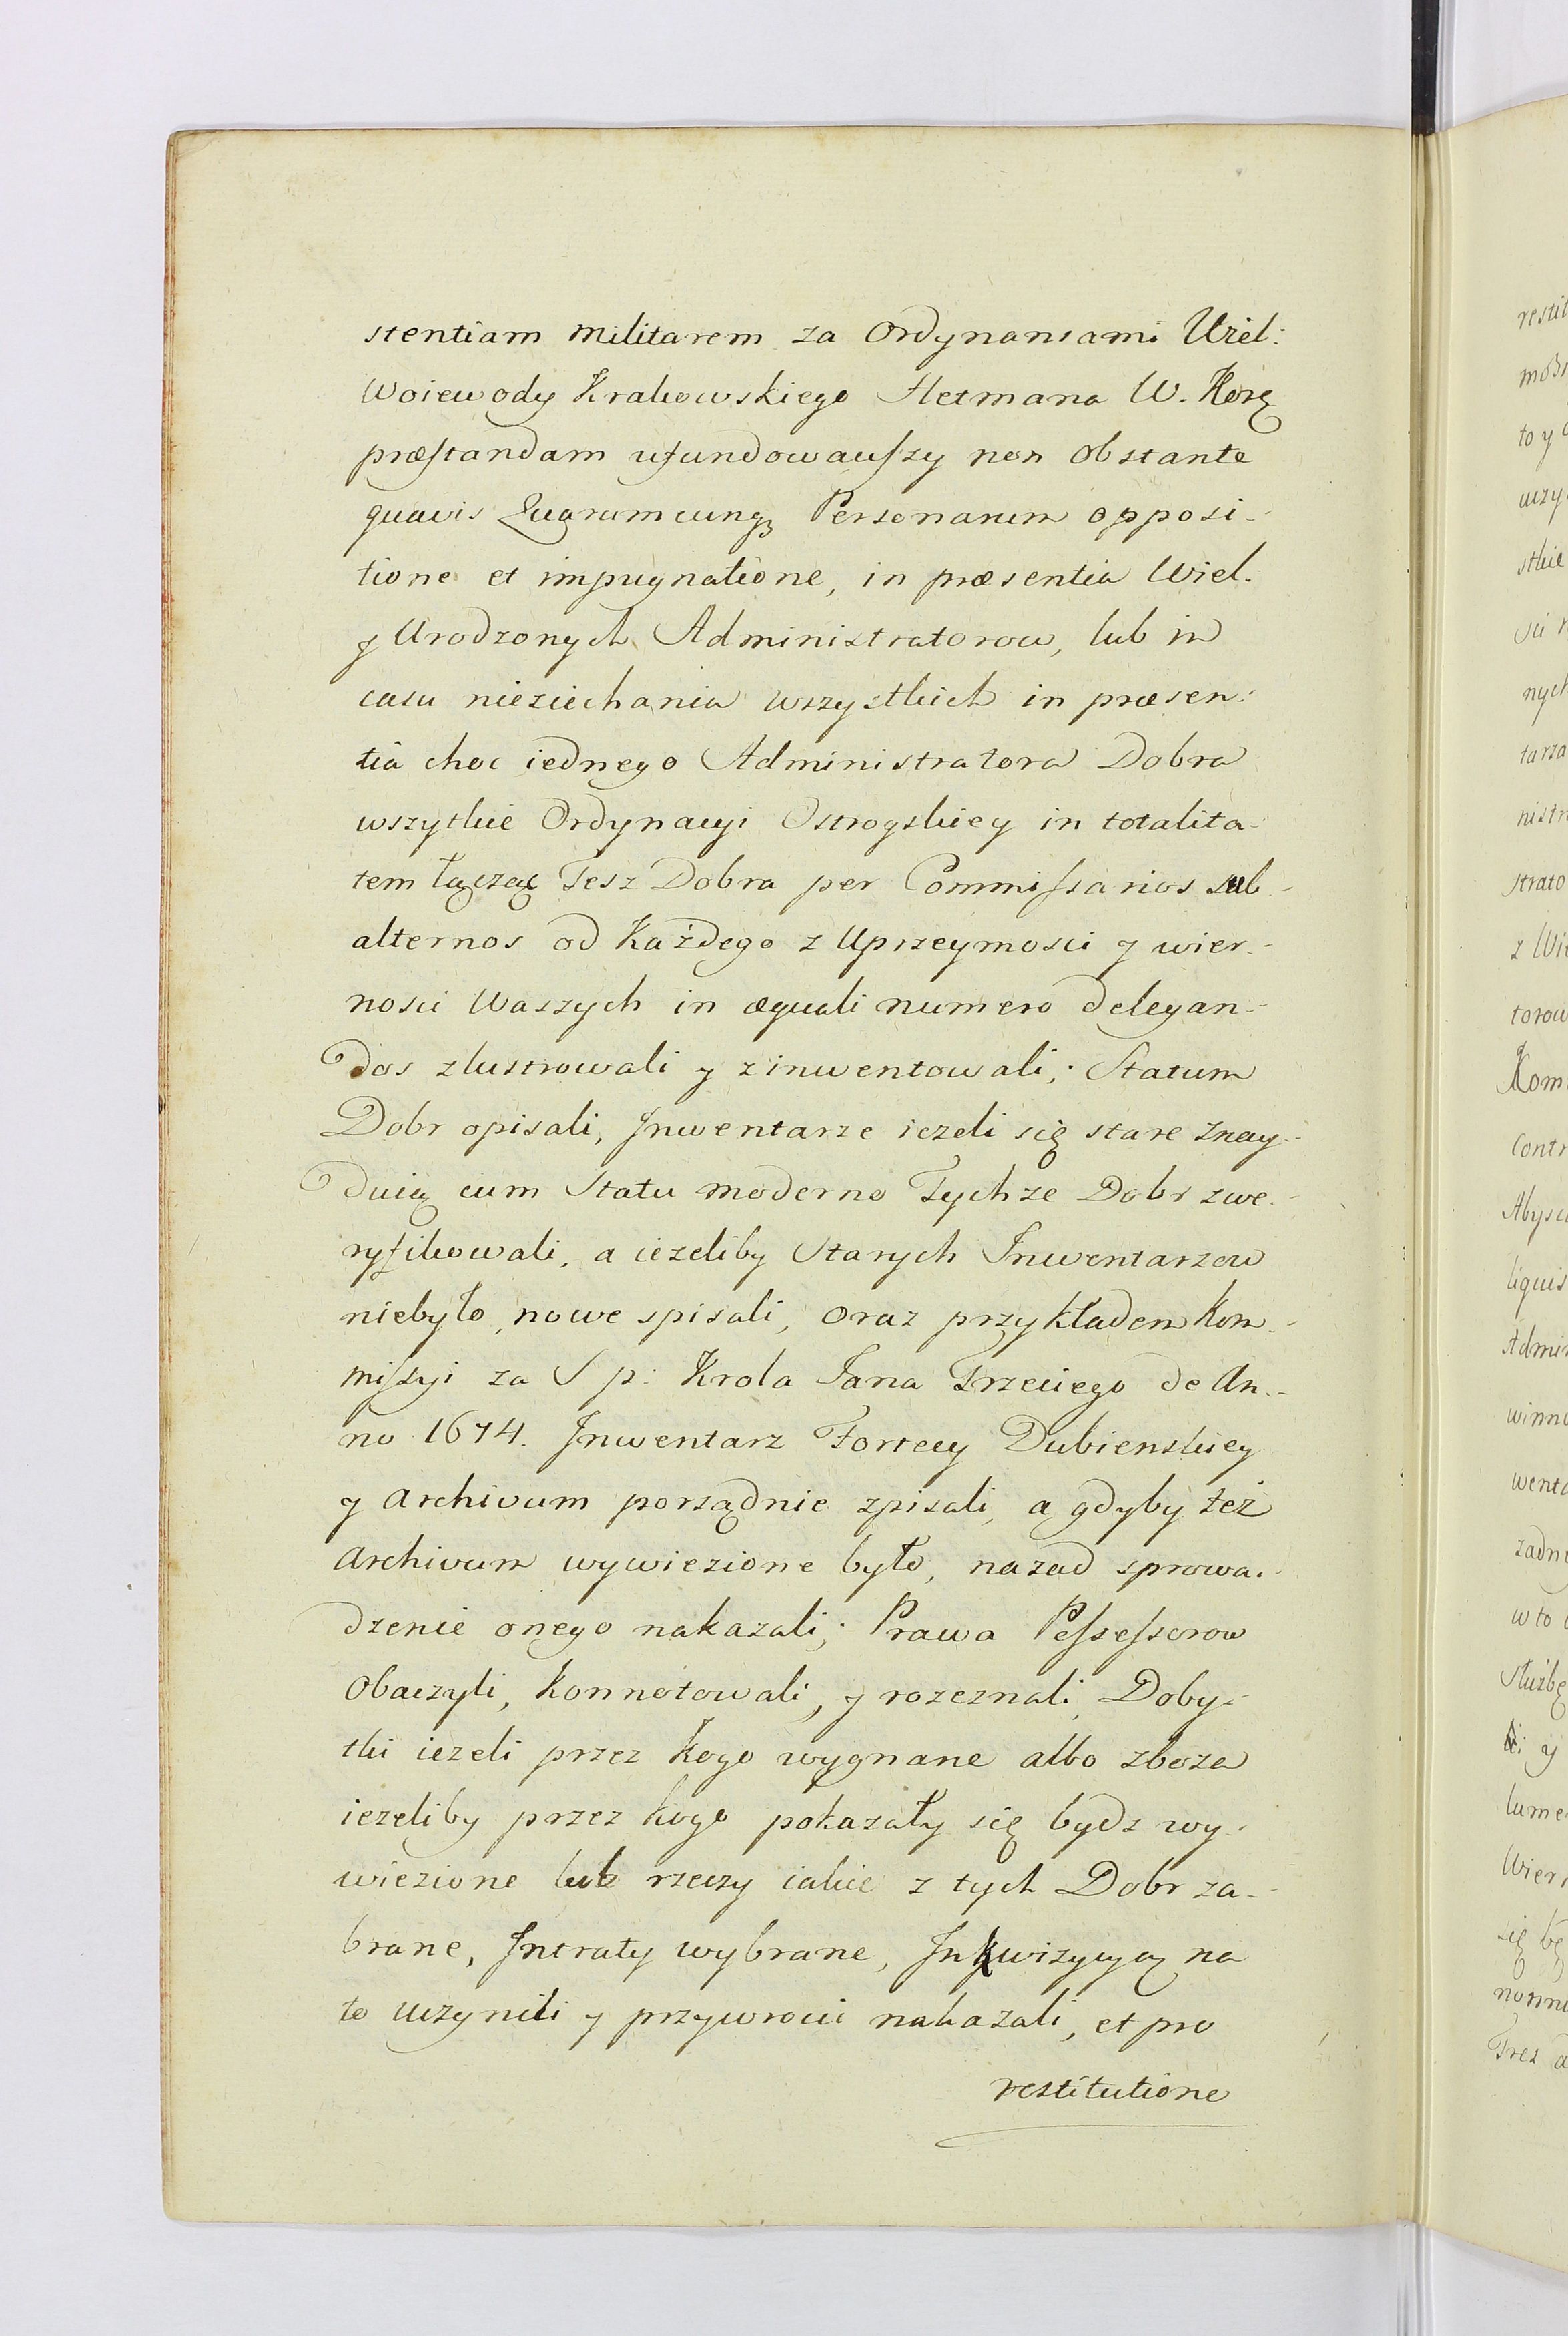 stentiam militarem za Ordynansami Wiel:
Woiewody Krakowskiego Hetmana W. Korᶒ
præstandam ufundowawszy non obstante
quavis Quarumcunqꝫ Personarum opposi-
tione et impugnatione, in præsentia Wiel.
y Urodzonych Administratorow, lub in
casu nieziechania wszystkich in præsen:
tia choc iednego Administratora Dobra
wszytkie Ordynacyi Ostrogskiey in totalita-
tem łącząc Tesz Dobra per Commissarios sub-
alternos od każdego z Uprzeymosci y wier-
nosci Waszych in æquali numero delegan-
dos zlustrowali y zinwentowali; Statum
Dobr opisali, Inwentarze iezeli się stare znay-
duią cum Statu moderno Tychze Dobr zwe-
ryfikowali, a iezeliby Starych Inwentarzow
niebyło, nowe spisali, oraz przykładem kom-
missyi za S p: Krola Jana Trzeciego de An-
no 1674. Inwentarz Fortecy Dubienskiey
y Archivum porządnie zpisali, a gdyby też
Archivum wywiezione było, nazad sprowa-
dzenie onego nakazali; Prawa Possessorow
obaczyli, konnotowali, y rozeznali, Doby-
tki iezeli przez kogo wygnane albo zboza
iezeliby przez kogo pokazały się bydz wy-
wiezione lub rzeczy iakie z tych Dobr za-
brane, Intraty wybrane, Inkwizycyą na
to uczynili y przywrocic nakazali, et pro
restitutione
restit
to y
stkie
nych
tarza
nistr
strato
z Wi
torow
Kom
Contr
Abysc
liquis
Admin
winno
wenta
zadn
w to
Służbę
y
lume
Wiern
się bę
nonnu
Trez a